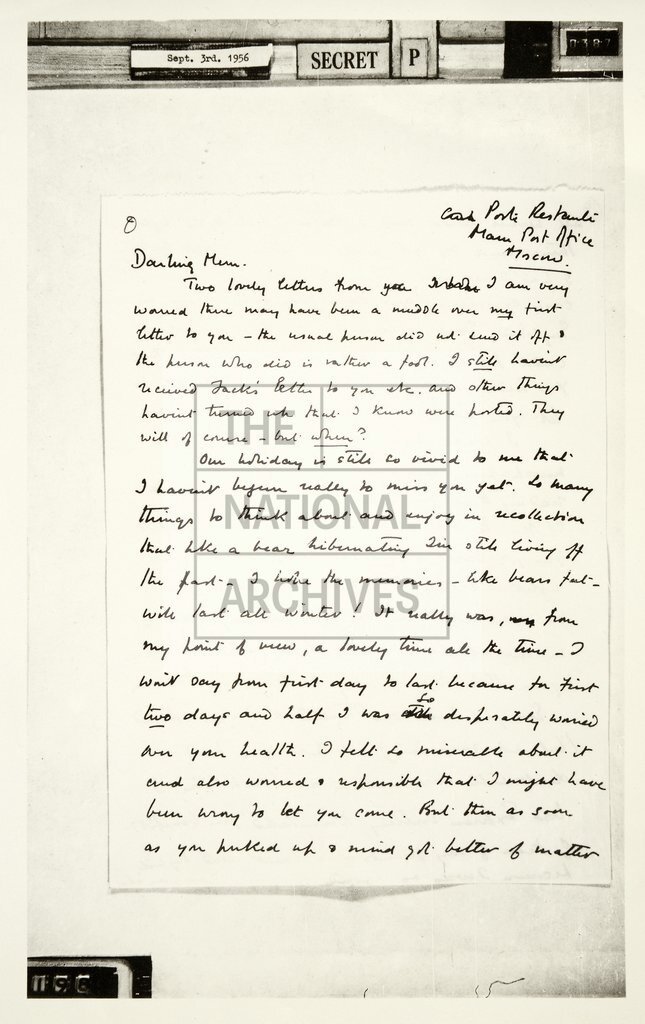 Sept. 3rd. 1956
SECRET
P
Poste Restante
Main Post Office
Moscow.
Darling Mum.
Two lovely letters from you I am very
worried there may have been a muddle over my first
letter to you – the usual person did not send it off &
the person who did is rather a fool. I still havint
recieved Jack's letter to you etc. and other things
havint turned up that I know were posted. They
will of course – but when?
Our holiday is still so vivid to me that
I havint begun really to miss you yet. So many
things to think about and enjoy in recollection
that like a bear hibernating I'm still living off
the past. I hope the memories – like bears fat –
will last all winter! It really was, from
my point of view, a lovely time all the time – I
won't say from first day to last because for first
two days and half I was so desperately worried
over your health. I felt so miserable about it
and also worried & responsible that I might have
been wrong to let you come. But then as soon
as you purked up & mind got better of matter
THE
NATIONAL
ARCHIVES